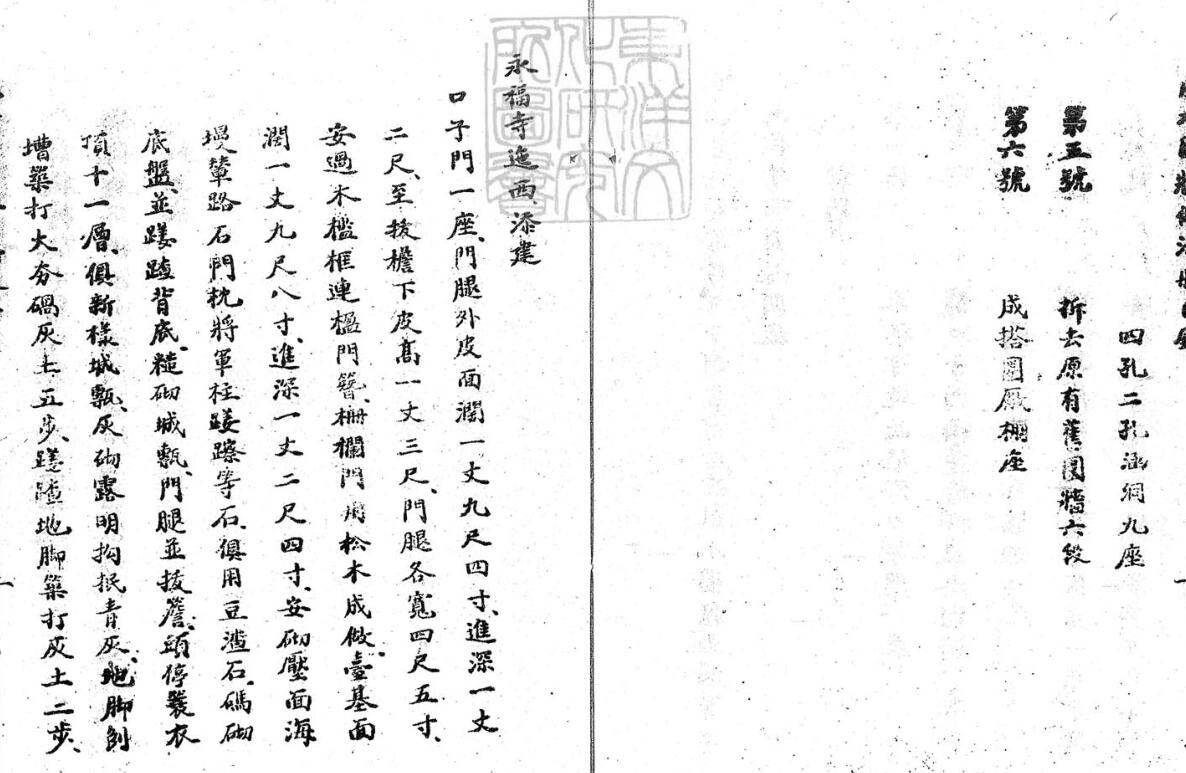 四孔二孔涵洞九座
第五號 拆去原有舊園牆六段
第六號 成搭圈厰棚座
永福寺迤西、添建
口子門一座、門腿外皮面濶一丈九尺四寸、進深一丈
二尺、至拔檐下皮高一丈三尺、門腿各寬四尺五寸、
安過木檻框連楹門簪、柵欄門、用松木成做、臺基面
濶一丈九尺八寸、進深一丈二尺四寸、安砌壓面海
墁輦路石門枕將軍柱䃎礤等石、俱用豆渣石、碼砌
底盤、並䃎䃰背底、糙砌城甎、門腿並拔簷、頭停蓑衣
頂十一層、俱新樣城甎、灰砌露明抅抿青灰、地脚刨
槽築打大夯碢灰土五步、䃎䃰地脚築打灰土二步、
東洋文化研究所圖書